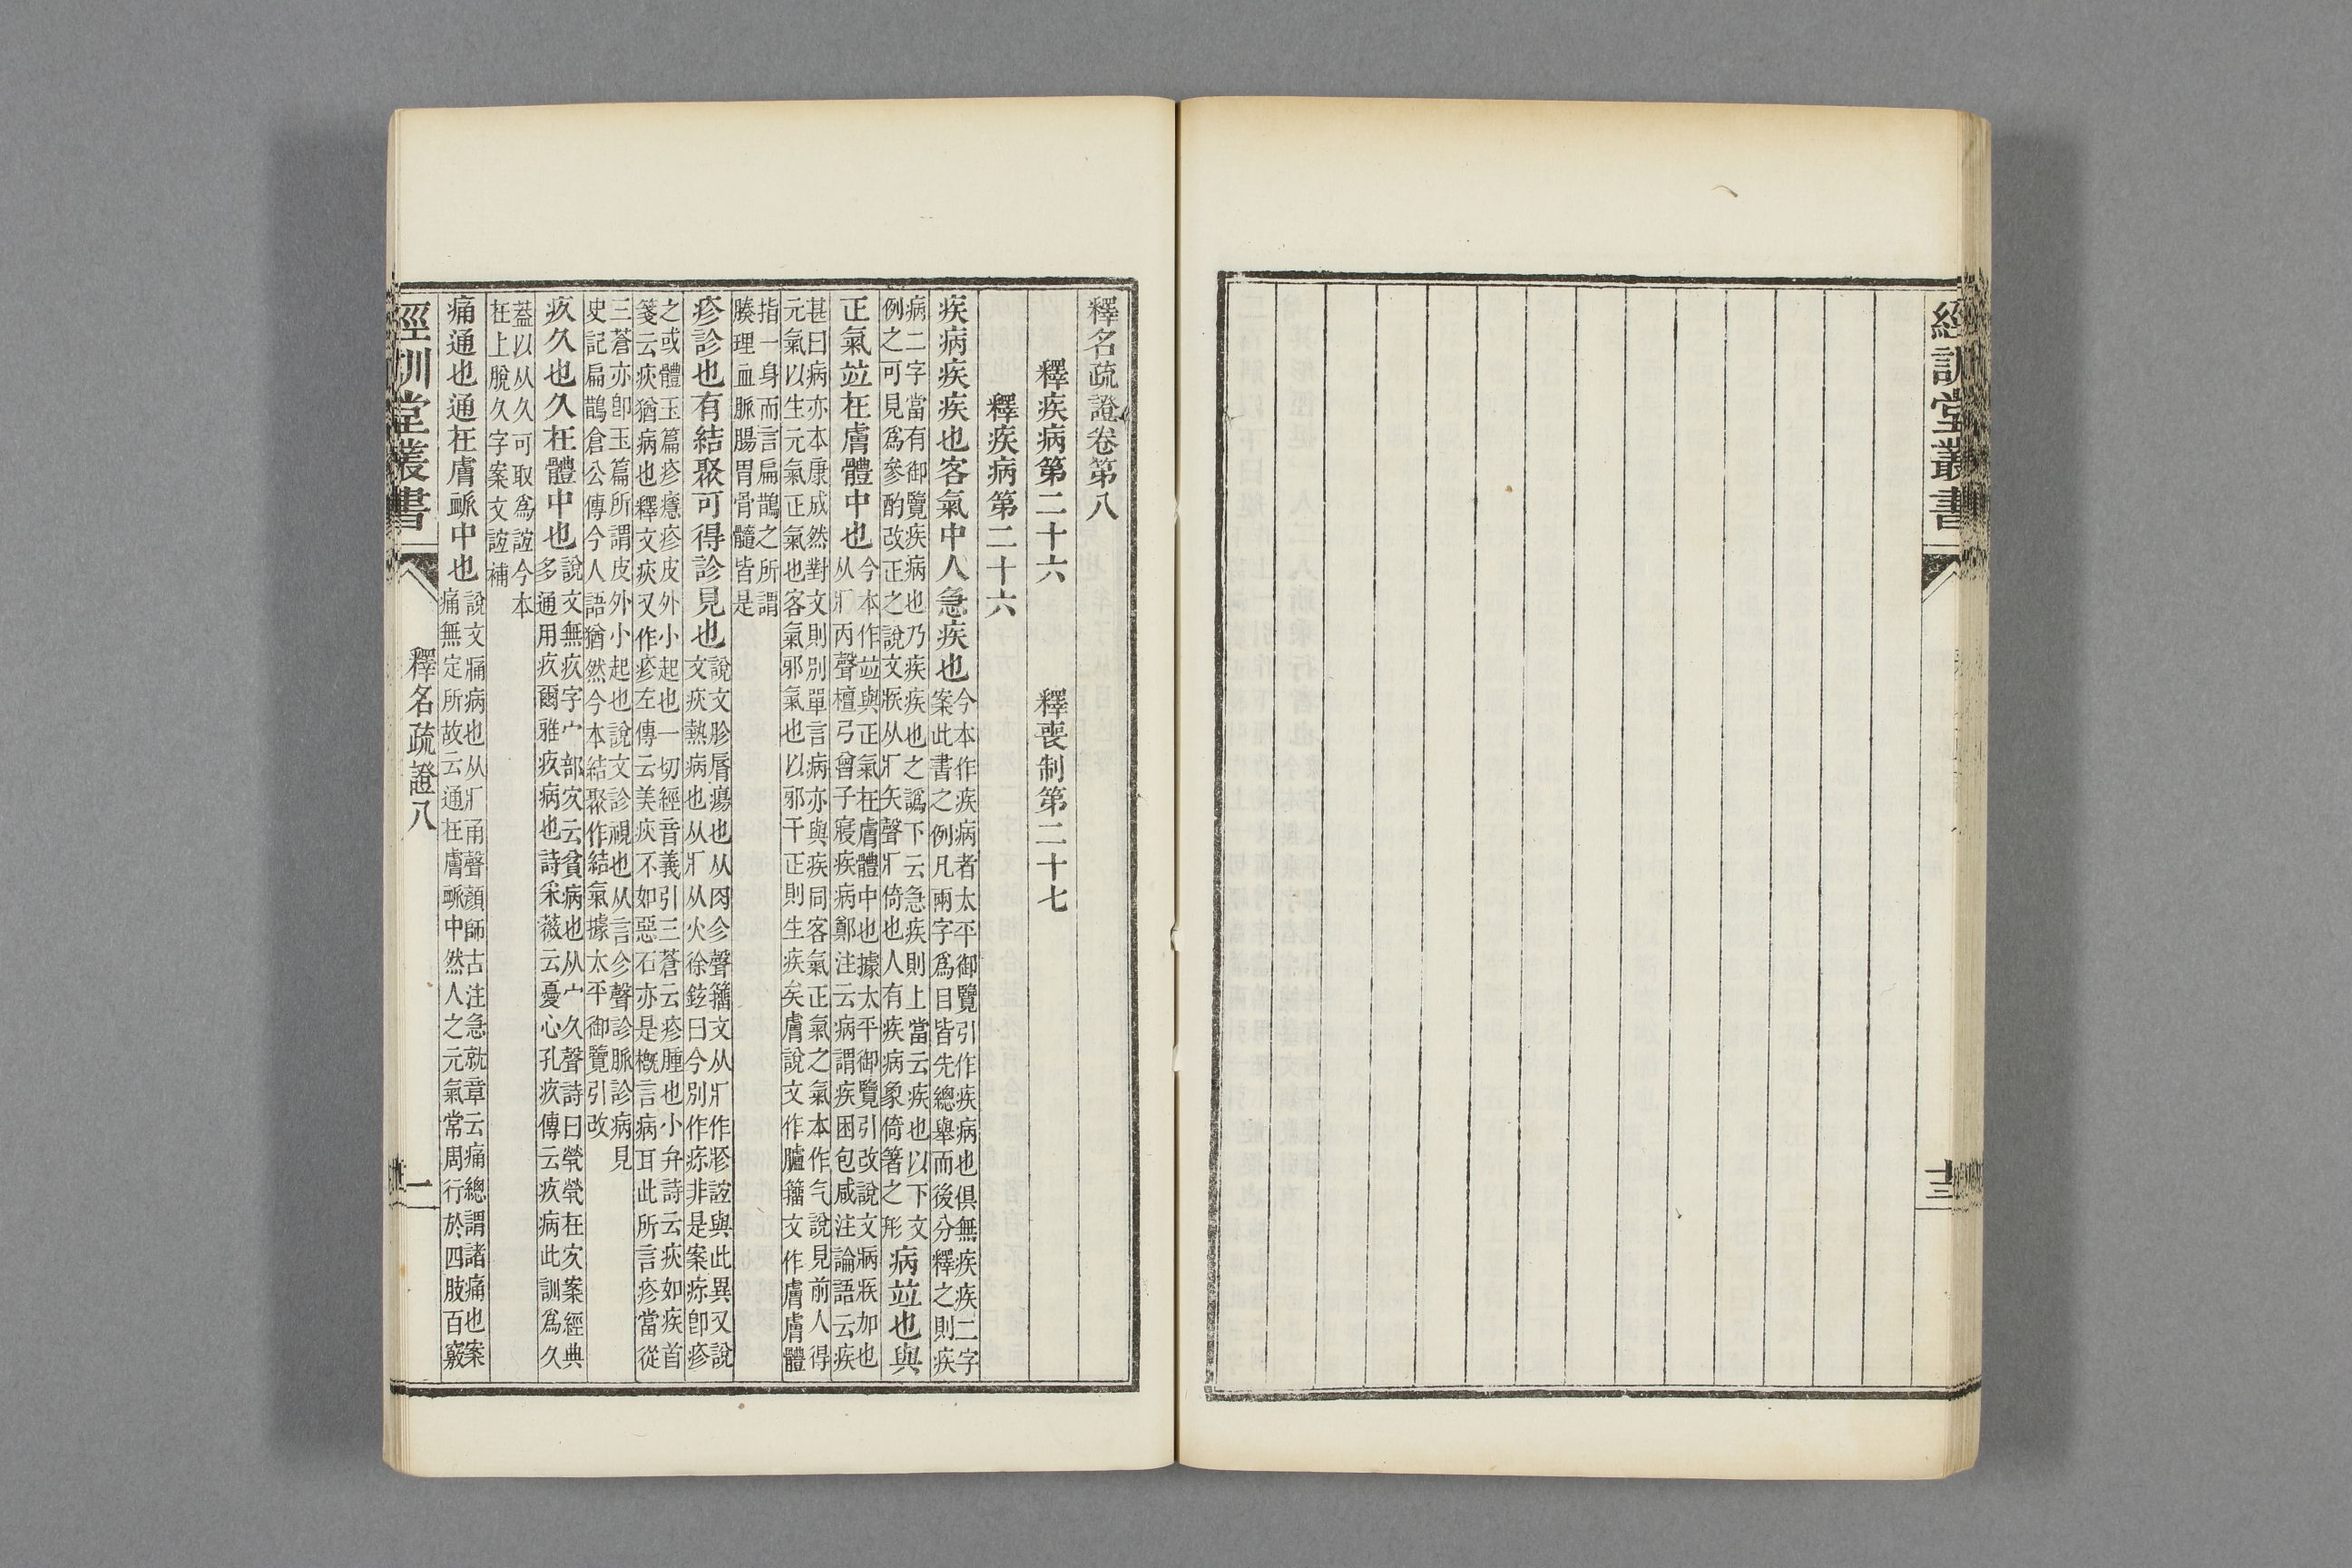 經訓堂叢書
十三
釋名疏證卷第八
釋疾病第二十六　釋喪制第二十七
釋疾病第二十六
疾病疾疾也客氣中人急疾也今本作疾病者太平御覽引作疾病也俱無疾疾二字
案此書之例凡兩字爲目皆先總舉而後分釋之則疾
病二字當有御覽疾病也乃疾疾也之譌下云急疾則上當云疾也以下文
例之可見爲參酌改正之說文疾从疒矢聲疒倚也人有疾病象倚箸之形病竝也與
正氣竝在膚體中也今本作竝與正氣在膚體中也據太平御覽引改說文病疾加也
从疒丙聲檀弓曾子寢疾病鄭注云病謂疾困包咸注論語云疾
甚曰病亦本康成然對文則別單言病亦與疾同客氣正氣之氣本作气說見前人得
元氣以生元氣正氣也客氣邪氣也以邪干正則生疾矣膚說文作臚籒文作膚膚體
指一身而言扁鵲之所謂
腠理血脈腸胃骨髓皆是
疹診也有結聚可得診見也說文胗脣瘍也从肉㐱聲籒文从疒作疹誼與此異又說
文疢熱病也从疒从火徐鉉曰今別作疹非是案疹卽疹
之或體玉篇疹癮疹皮外小起也一切經音義引三蒼云疹腫也小弁詩云疢如疾首
箋云疢猶病也釋文疢又作疹左傳云美疢不如惡石亦是槪言病耳此所言疹當從
三蒼亦卽玉篇所謂皮外小起也說文診視也从言㐱聲診脈診病見
史記扁鵲倉公傳今人語猶然今本結聚作結氣據太平御覽引改
疚久也久在體中也說文無疚字宀部㝌云貧病也从宀久聲詩曰煢煢在㝌案經典
多通用疚爾雅疚病也詩采薇云憂心孔疚傳云疚病此訓爲久
蓋以从久可取爲誼今本
在上脫久字案文誼補
痛通也通在膚脈中也說文痛病也从疒甬聲顏師古注急就章云痛總謂諸痛也案
痛無定所故云通在膚脈中然人之元氣常周行於四肢百竅
經訓堂叢書
釋名疏證八
一